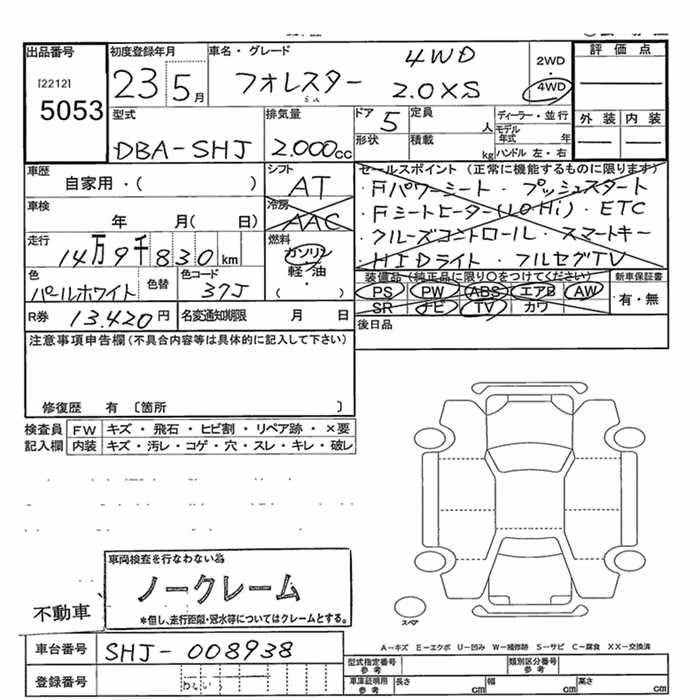 出品番号 初度登録年月 車名・グレード 4WD 2WD・4WD 評価点
[2212] 5053 23 5月 フォレスター 2.0XS
型式 排気量 ドア 5 定員 人 ディーラー・並行 外装 内装
DBA-SHJ 2.000cc 形状 積載 kg モデル年式 年 ハンドル 左・右
車歴 自家用・( ) シフト AT セールスポイント (正常に機能するものに限ります)
Fパワーシート・プッシュスタート
車検 年 月( 日) 冷房 AAC
・Fシートヒーター(LO.Hi)・ETC
・クルーズコントロール・スマートキー
走行 14万9千830km 燃料 ガソリン・軽油・( )
・HIDライト・フルセグTV
色 パールホワイト 色替 色コード 37J
装備品(純正品に限り○をつけてください) 新車保証書
PS PW ABS エアB AW 有・無
SR ナビ TV カワ
R券 13.420円 名変通知期限 月 日 後日品
注意事項申告欄(不具合内容等は具体的に記入して下さい)
修復歴 有 〔箇所 〕
検査員 FW キズ・飛石・ヒビ割・リペア跡・×要
記入欄 内装 キズ・汚レ・コゲ・穴・スレ・キレ・破レ
車両検査を行なわない為
ノークレーム
*但し、走行距離・冠水等についてはクレームとする。
不動車
スペア
A-キズ E-エクボ U-凹み W-補修跡 S-サビ C-腐食 XX-交換済
車台番号 SHJ-008938
型式指定番号 参考 類別区分番号 参考
登録番号
車庫証明用 参考 長さ cm 幅 cm 高さ cm